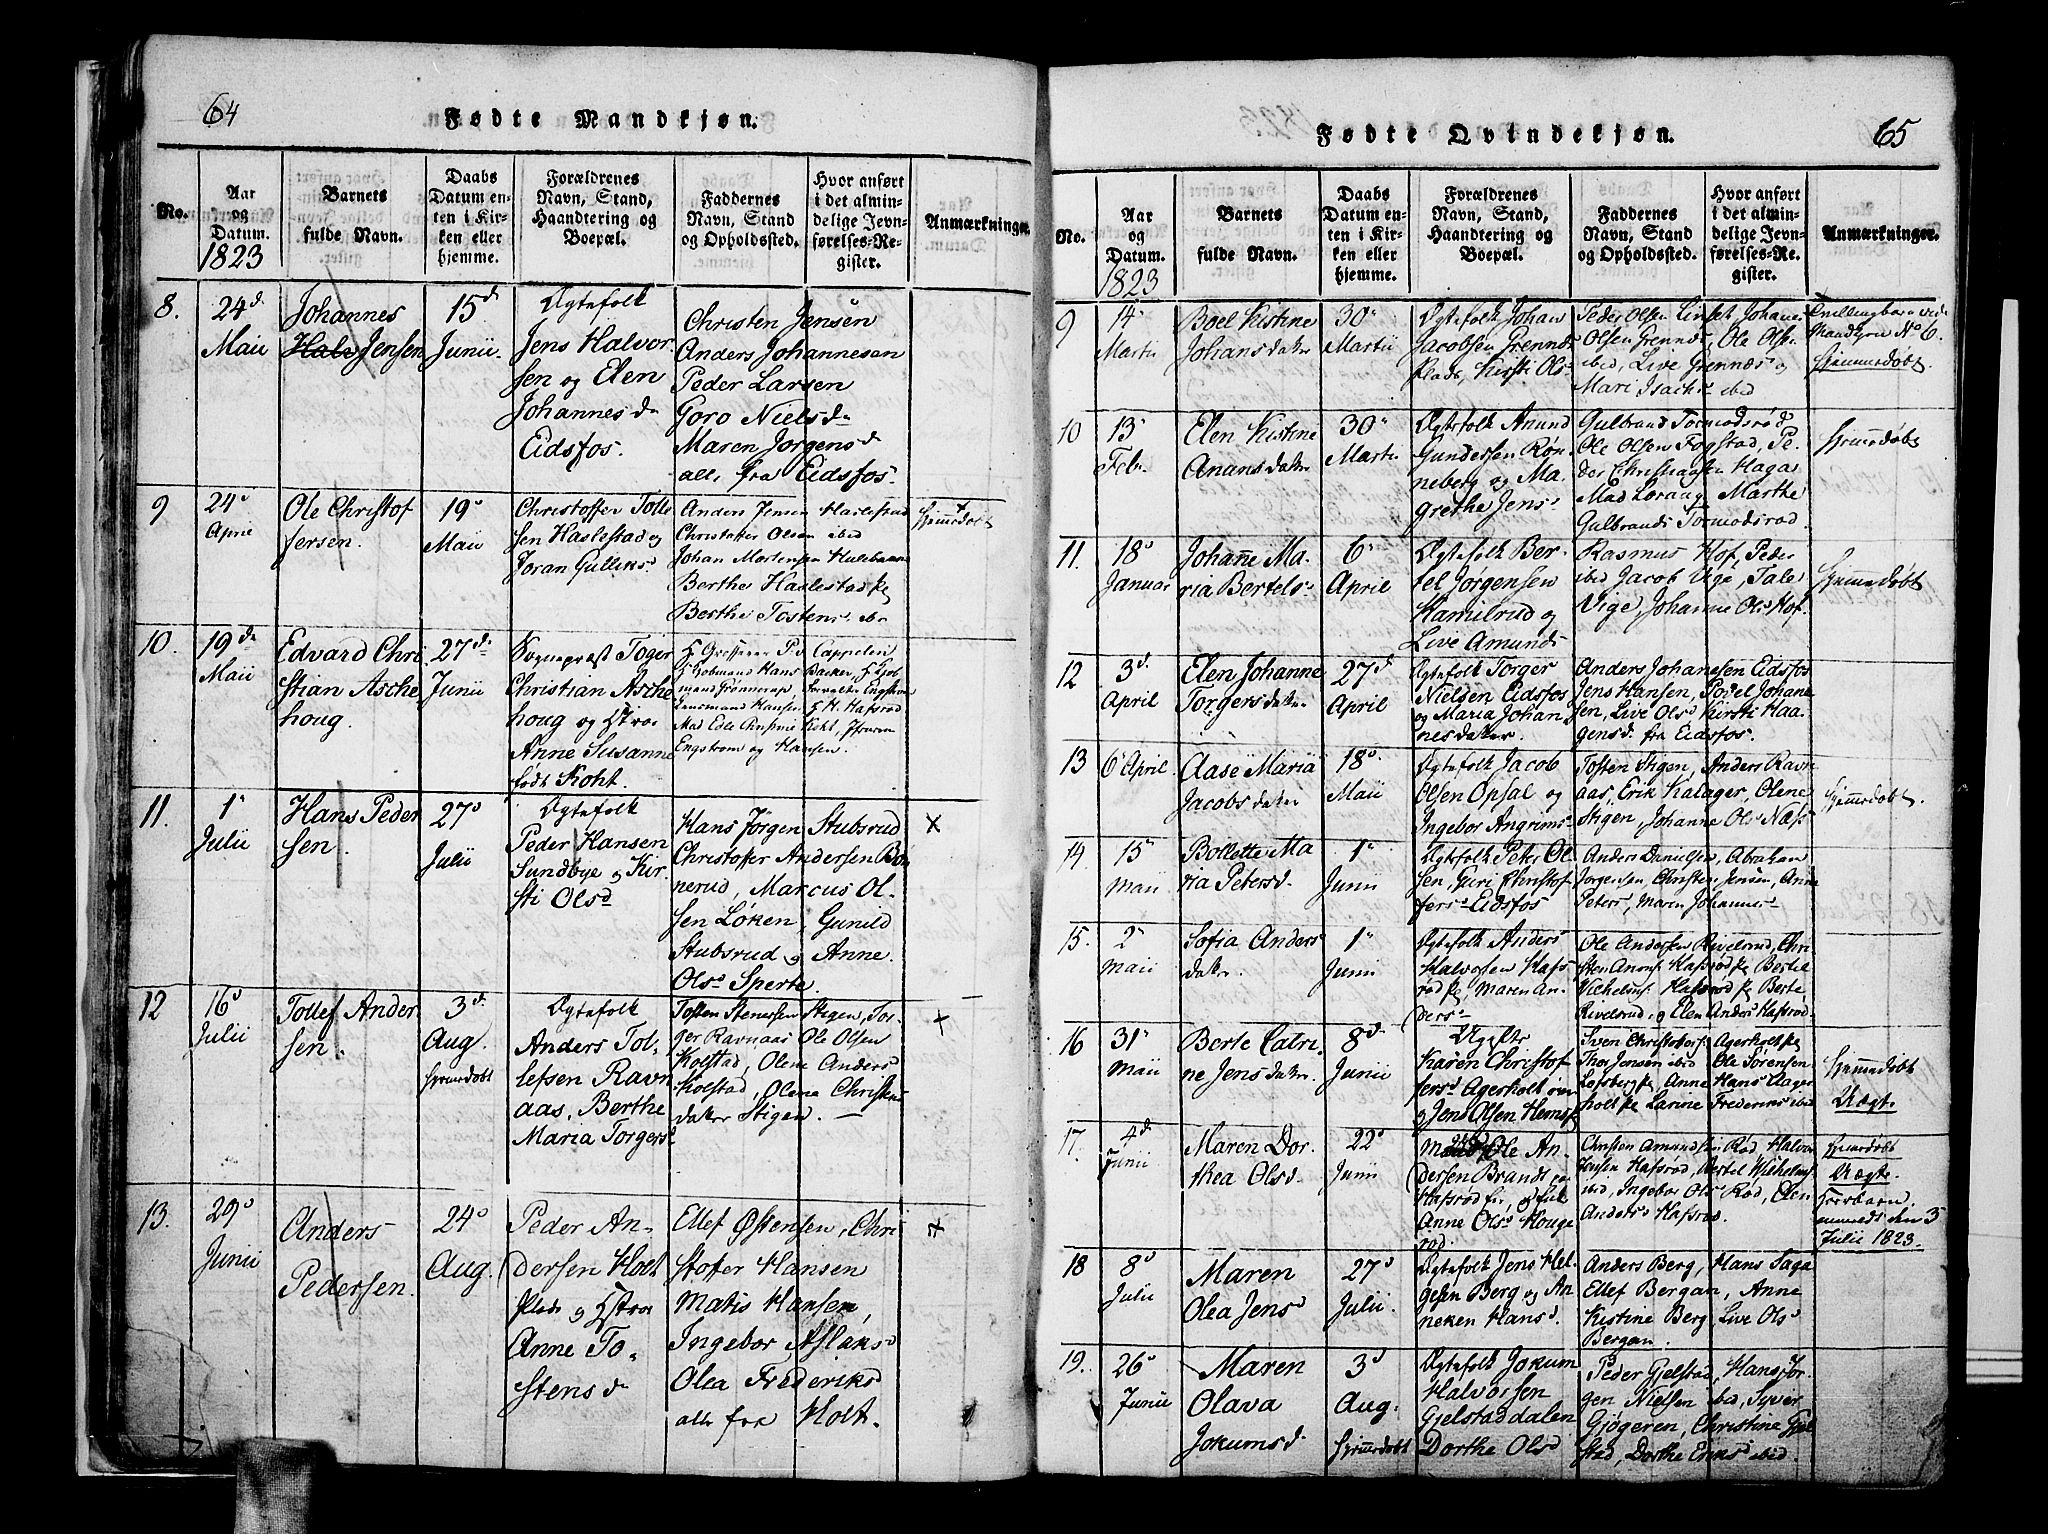 64
Fødte Mandkjøn.
No.
Aar
og
Datum.
1823
Barnets
fulde Navn.
Daabs
Datum en-
ten i Kir-
ken eller
hjemme.
Forældrenes
Navn, Stand,
Haandtering og
Boepæl.
Faddernes
Navn, Stand
og Opholdssted.
Hvor anført
i det almin-
delige Jevn-
førelses-Re-
gister.
Anmærkninger.
8.
24d.
Maii
Johannes
Jensen
15d
Junii.
Ægtefolk
Jens Halvor
sen og Elen
Johannesda
Eidsfos.
Christen Jensen
Anders Johannesen
Peder Larsen
Goro Nielsda
Maren Jorgensd
alle fra Eidsfos.
9
24d
April
Ole Christof
fersen.
19d
Maii
Christoffer Tolls
sen Haslestad og
Joran Gulliks.
Anders Jensen Haslestad
Christoffer Olsen ibid
Johan Mortensen
Berthe Haslestad
Berthe Tostens ibr
hjemedøbt
10.
19de
Maii
Edvard Chri
stian Asche
houg.
27de
Junii
Sogneprest Toger
Christian Asche
houg og Hustroe
Anne Susanne
født Koht.
Cappelen
mand Hans Backer,
Lensmand Hansen H. Hafsrød
Mad
Engstrom og Hansen.
11.
1
Julii
Hans Peder
sen.
27d
Julii
Ægtefolk
Peder Hansen
Sundbye og Kir
sti Olsd
Hans Jørgen Stubsrud
Christoffer Andersen Bø
nerud, Marcus Ol
sen Løken, Gunild
Stubsrud og Anne
Olsd Sperte.
×
12
16d
Julii
Tollef Ander
sen.
3d.
Aug.
hjemedøbt
Ægtefolk
Anders Tol-
lefsen Ravn
aas, Berthe
Maria Torgersd
Tosten Stenersen Stigen, Tor-
ger Ravnaas Ole Olsen
Kolstad, Olene Anders
Kolstad, Olene Christens
datter Stigen.
×
13.
29d
Junii
Anders
Pedersen.
24d
Aug.
Peder An-
dersen Holt
plads og Hstroe
Anne To-
stensda
Ellef Østensen, Chri
stoffer Hansen
Matis Hansen,
Ingebor Aslaksd
Olea Frederiksd
alle fra Holt.
×
65
Fødte Qvindekjøn.
No.
Aar
og
Datum.
1823
Barnets
fulde Navn.
Daabs
Datum en-
ten i Kir-
ken eller
hjemme.
Forældrenes
Navn, Stand,
Haandtering og
Boepæl.
Faddernes
Navn, Stand
og Opholdssted.
Hvor anført
i det almin-
delige Jevn-
førelses-Re-
gister.
Anmærkninger.
9
14
Martii
Boel Kistine
Johansdatter
30
Martii
Ægtefolk Johan
Jacobsen Grennes
plads, Kirsti Ols
Peder Olsen Linset Johan
Olsen Grennes, Ole Ols
ibid, Live Grennes og
Mari Isachs ibid
Tvillingbarn
Mandkjøn No 6.
hjemmedøbt
10
13
Febr.
Elen Kistine
Anansdatter
30
Martii
Ægtefolk Anund
Gundersen Røn
neberg og Ma
grethe Jens
Gulbrand Tormodsrød
Ole Olsen Fogstad, Pe
der Christiansen Haga
Mad Loraug Marthe
Gulbrands Tormodsrød.
hjemedøbt
11.
18d
Januar
Johanne Ma-
ria Bertels
6
April
Ægtefolk Ber-
tel Jørgensen
Kamilrud og
Live Amunds
Rasmus Hof, Peder
ibid Jacob Vige, Tale
Vige, Johanne Ols Hof.
hjemmedøbt
12
3d.
April
Elen Johanne
Torgersdatter
27d
April
Ægtefolk Torger
Nielsen Eidsfos
og Maria Johan
nesdatter.
Anders Johanesen Eidsfos
Jens Hansen, Povel Johane
sen, Live Olsd Kirsti Haa-
gensd. fra Eidsfos.
13
6 April.
Aase Maria
Jacobsdatter
18d.
Maii
Ægtefolk Jacob
Olsen Opsal og
Ingebor Angrims
Tosten Stigen, Anders Ravn
aas, Erik Kalager, Olene
Stigen, Johanne Ols Næss
hjemmedøbt.
14.
15
Maii
Bollette Ma
ria Petersd.
1
Junii
Ægtefolk Peter Ol
sen, Guri Christof
fers Eidsfos
Anders Danielsen, Abraham
Jorgensen, Christen Jensen, Anne
Peters, Maren Johannes
15.
2
Maii
Sofia Anders
datter.
1
Junii
Ægtefolk Anders
Halvorsen Hafs
rød, Maren An
ders
Ole Andersen Rivelsrud, Chri
sten Hafsrød Bertel
Hafsrød Berte
Rivelsrud, og Elen Anders Hafsrød.
16
31
Maii
Berte Catri-
ne Jensdatter.
8d.
Junii
Uægte
Karen Christof
fers Agerholt
og Jens Olsen Hems
Sven Christophers Agerholt
Thor Jensen ibid Ole Sørensen
Løfsberg, Anne Hans Ager
holt Larine Frederiks ibid
hjemmedøbt
Uægte
17.
4d.
Junii
Maren Dor-
thea Olsd.
22d
Junii
Ole An-
dersen Brandt
Hafsrød
Anne Olsd Houge
rød
Christen Amundsen Rød, Halvor
Jensen Hafsrød, Bertel Wilhelms
ibid, Ingebor Ols Rød, Elen
Anders Hafsrød.
hjemmedøbt
Uægte.
den 3
Julii 1823.
18
8d
Julii
Maren
Olea Jensd
27d
Julii.
Ægtefolk Jens Hel-
gesen Berg og An
neken Hansd.
Anders Berg, Hans Saga
Ellef Bergan, Anne
Kistine Berg, Live Ols
Bergan.
19.
26d
Junii
Maren
Olava
Jokumsd.
3d
Aug.
hjemedøbt
Ægtefolk Jokum
Halvorsen
Gjelstaddalen
Dorthe Olsd
Peder Gjelstad, Hans Jør-
gen Nielsen ibid, Syver
Gjøgeren, Christine Gjel
stad, Dorthe Eriks ibid.